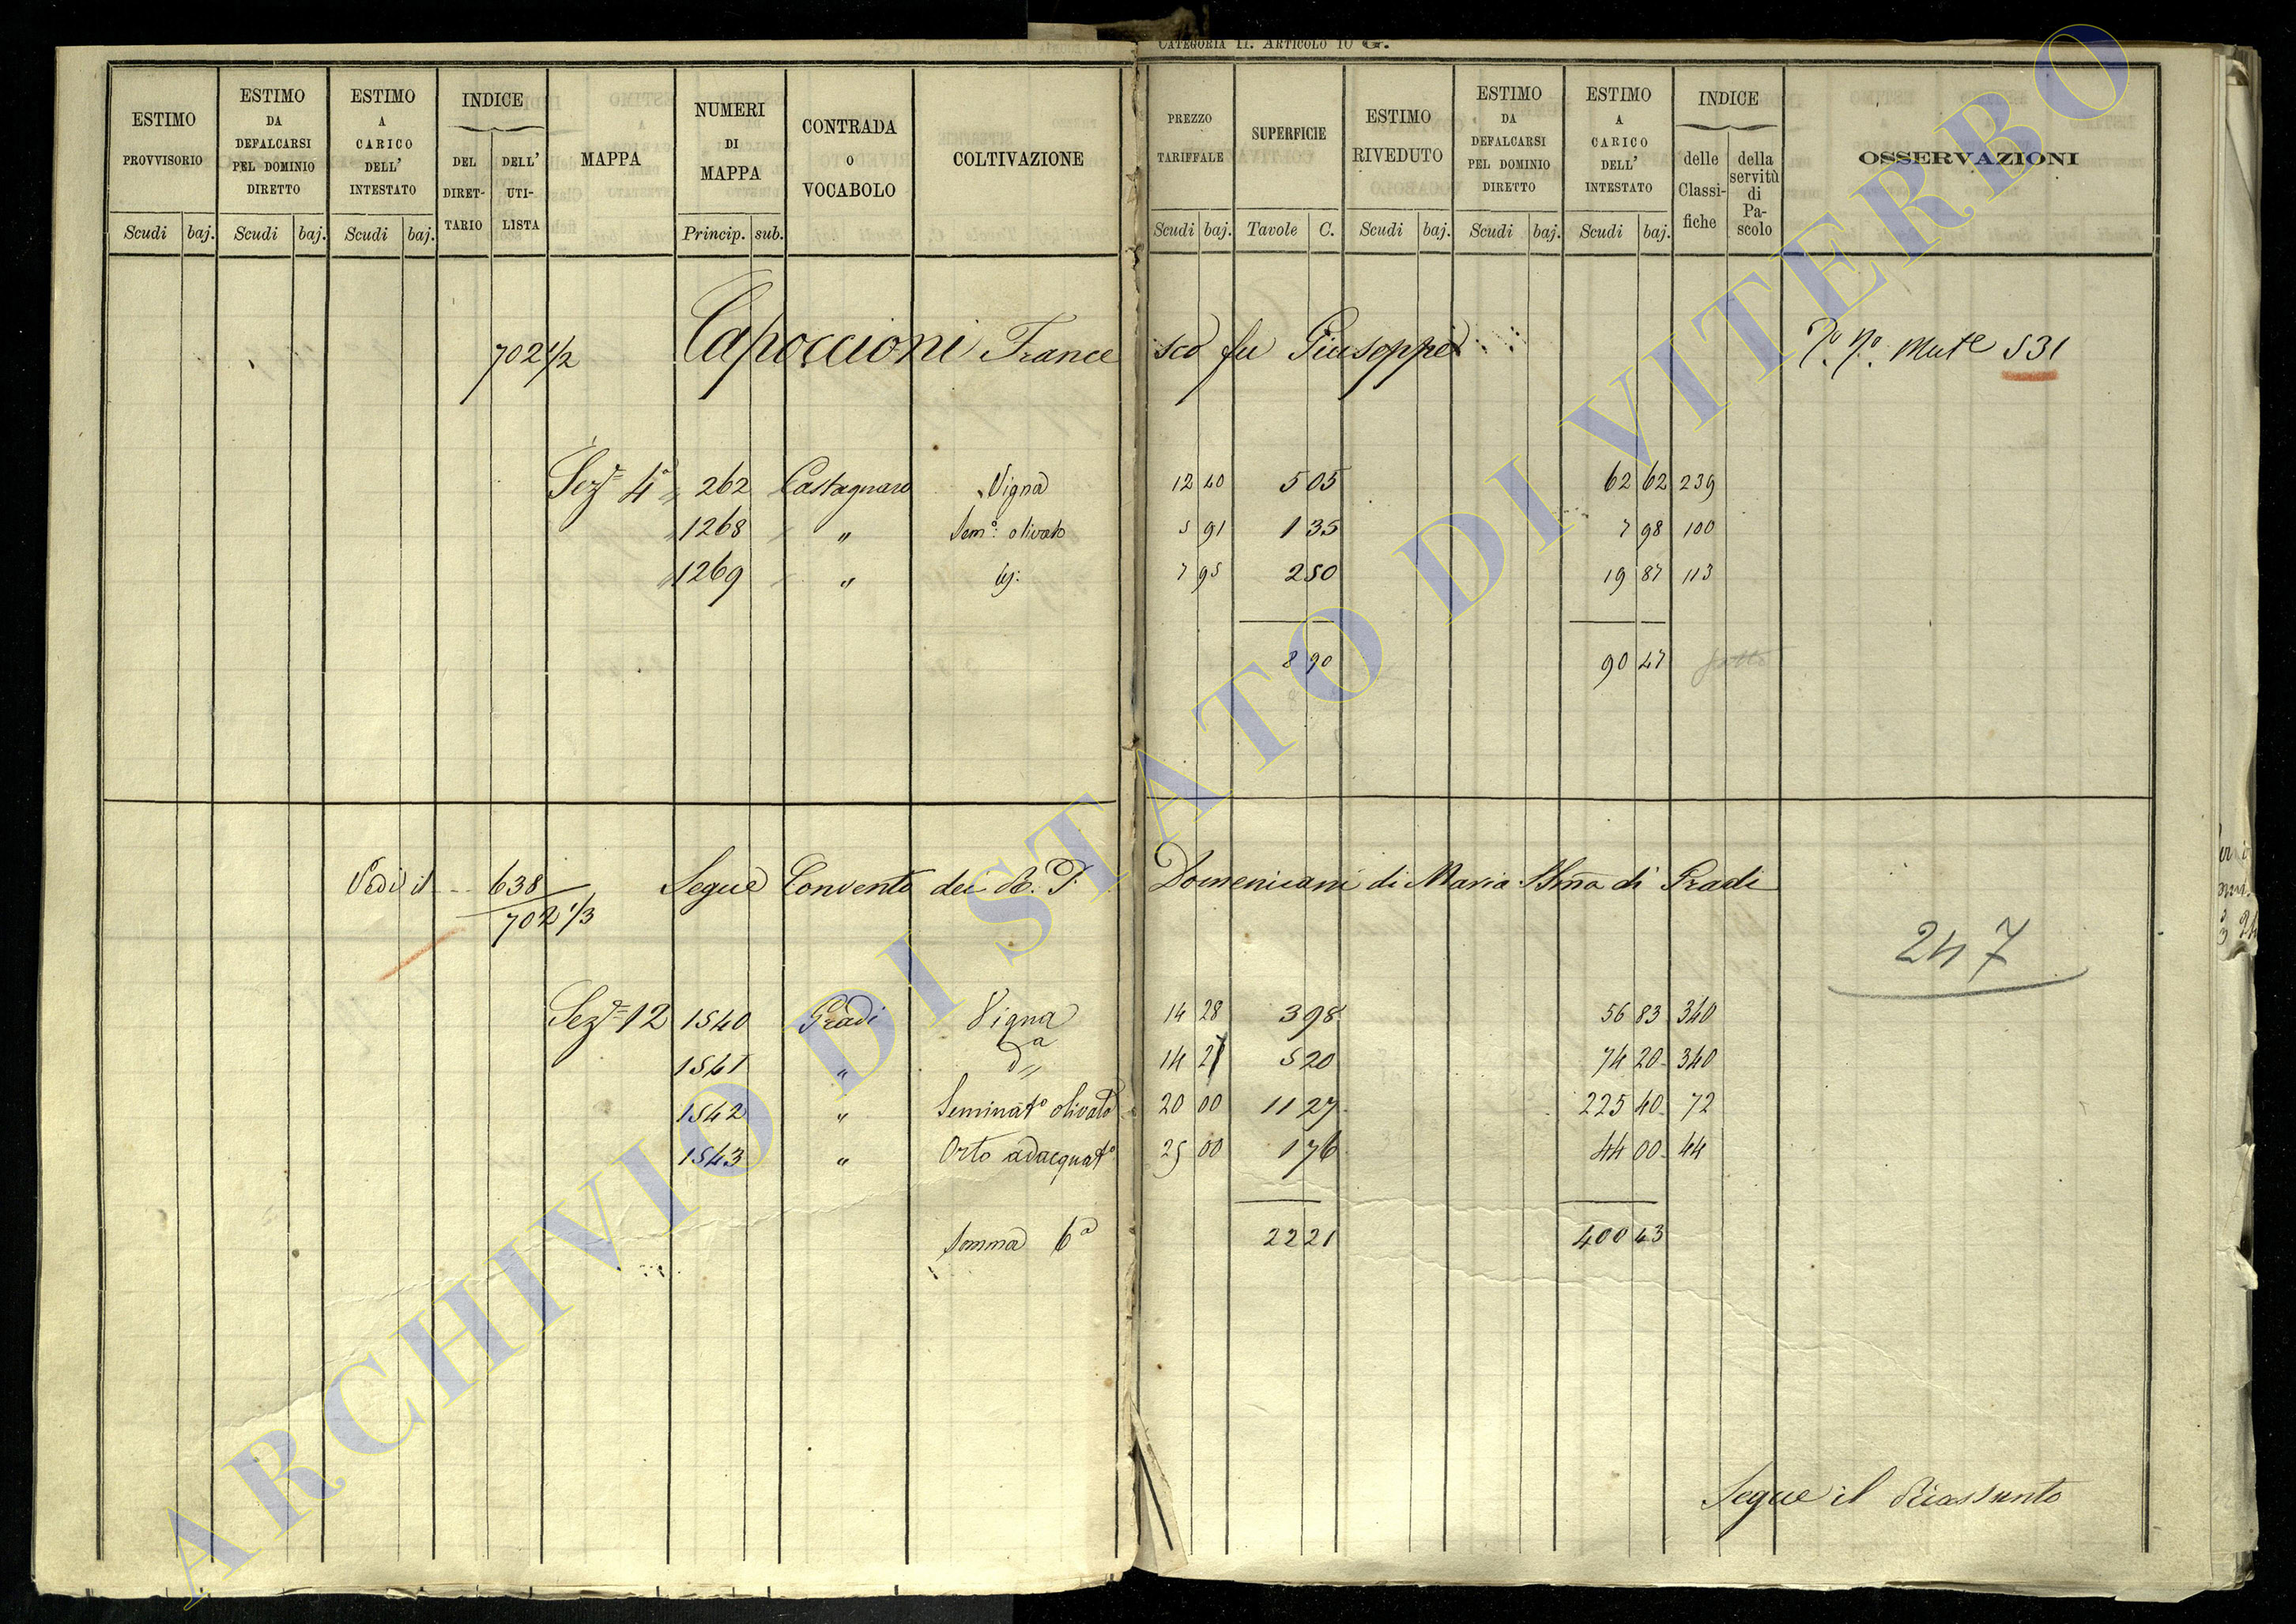 CATEGORIA II. ARTICOLO 10 G.
ESTIMO PROVVISORIO Scudi baj.
ESTIMO DA DEFALCARSI PEL DOMINIO DIRETTO Scudi baj.
ESTIMO A CARICO DELL' INTESTATO Scudi baj.
INDICE DEL DIRET-TARIO DELL' UTI-LISTA
MAPPA
NUMERI DI MAPPA Princip. sub.
CONTRADA O VOCABOLO
COLTIVAZIONE
PREZZO TARIFFALE Scudi baj.
SUPERFICIE Tavole C.
ESTIMO RIVEDUTO Scudi baj.
ESTIMO DA DEFALCARSI PEL DOMINIO DIRETTO Scudi baj.
ESTIMO A CARICO DELL' INTESTATO Scudi baj.
INDICE delle Classi-fiche della servitù di Pa-scolo
OSSERVAZIONI
702 1/2 Capoccioni Francesco fu Giuseppe Mut.e 531
Sez.e 4a 262 Castagnaro Vigna 12 40 5 05 62 62 239
1268 " Sem.o olivato 5 91 1 35 7 98 100
1269 " 7 95 2 50 19 87 113
8 90 90 47 fatto
Vedi il 638 Segue Convento dei R. P. Domenicani di Maria SSma di Gradi
702 1/3
247
Sez.e 12 1540 Gradi Vigna 14 28 3 98 56 83 340
1541 " da 14 27 5 20 74 20 340
1542 " Seminato olivato 20 00 11 27 225 40 72
1543 " Orto adacquato 25 00 1 76 44 00 44
Somma 6a 22 21 400 43
Segue il Riassunto
ARCHIVIO DI STATO DI VITERBO